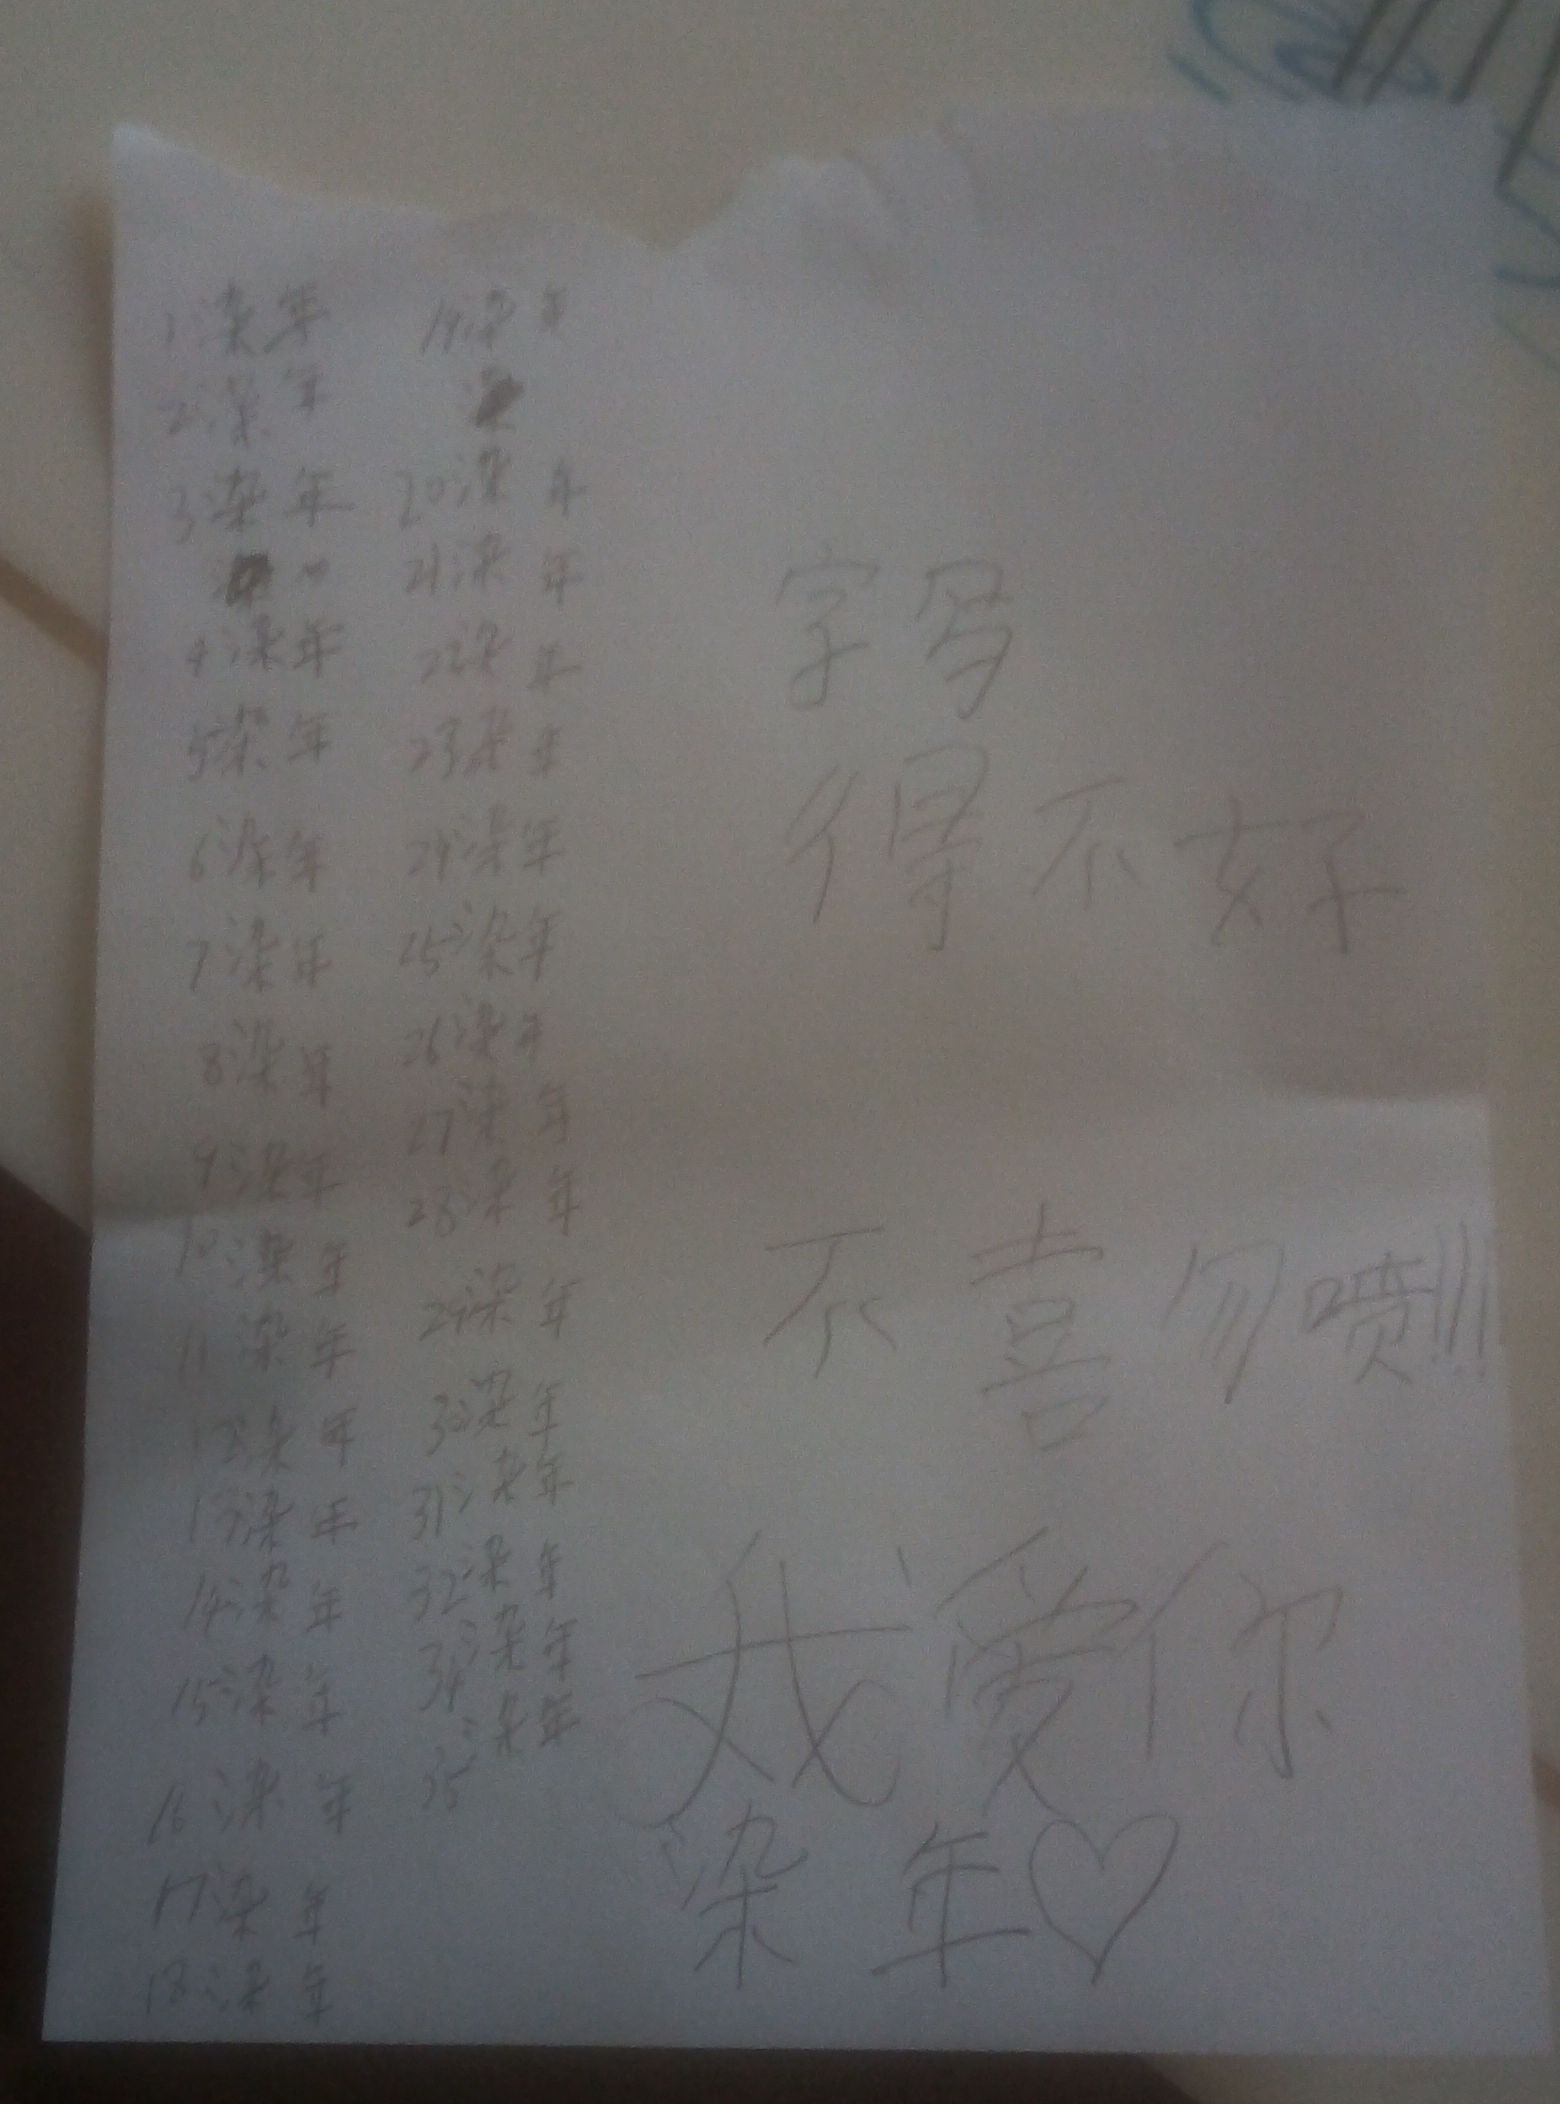 1染年
2染年
3染年
4染年
5染年
6染年
7染年
8染年
9染年
10染年
11染年
12染年
13染年
14染年
15染年
16染年
17染年
18染年
19染年
20染年
21染年
22染年
23染年
24染年
25染年
26染年
27染年
28染年
29染年
30染年
31染年
32染年
34染年
35染年
字写
得不好
不喜勿喷!!!
我爱你
染年♡